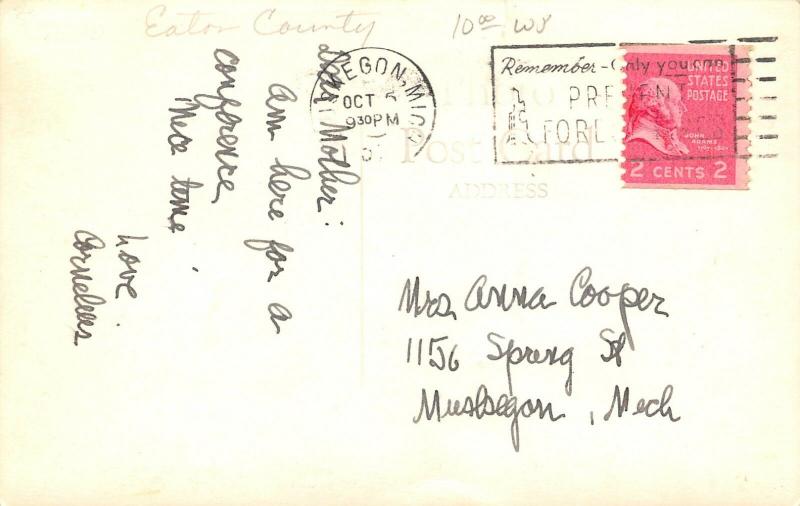 Eaton County
10.00 WS
Dear Mother:
Am here for a
conference
Nice time.
Love
Cornelius
MUSKEGON, MICH
OCT 5
930PM
Remember-Only you can
PREVENT
FOREST
UNITED
STATES
POSTAGE
JOHN
ADAMS
2 CENTS 2
Post Card
ADDRESS
Mrs Anna Cooper
1156 Spring St
Muskegon, Mich